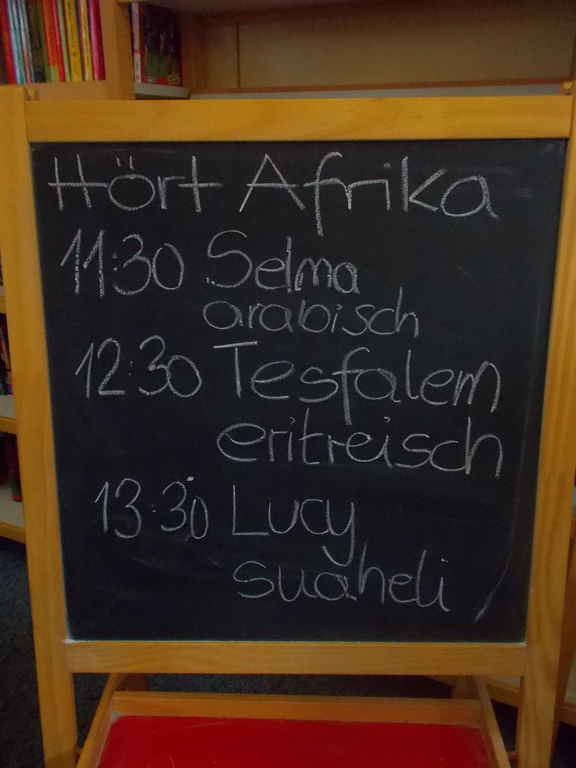 Hört Afrika
11:30 Selma
arabisch
12:30 Tesfalem
eritreisch
13:30 Lucy
suaheli